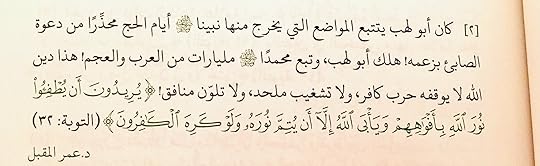 [٢] كان أبو لهب يتتبع المواضع التي يخرج منها نبينا ﷺ أيام الحج محذِّرًا من دعوة
الصابئ بزعمه! هلك أبو لهب، وتبع محمدًا ﷺ مليارات من العرب والعجم! هذا دين
الله لا يوقفه حرب كافر، ولا تشغيب ملحد، ولا تلوّن منافق! ﴿يُرِيدُونَ أَن يُطۡفِـُٔواْ
نُورَ ٱللَّهِ بِأَفۡوَٰهِهِمۡ وَيَأۡبَى ٱللَّهُ إِلَّآ أَن يُتِمَّ نُورَهُۥ وَلَوۡ كَرِهَ ٱلۡكَٰفِرُونَ﴾ (التوبة: ٣٢)
د.عمر المقبل